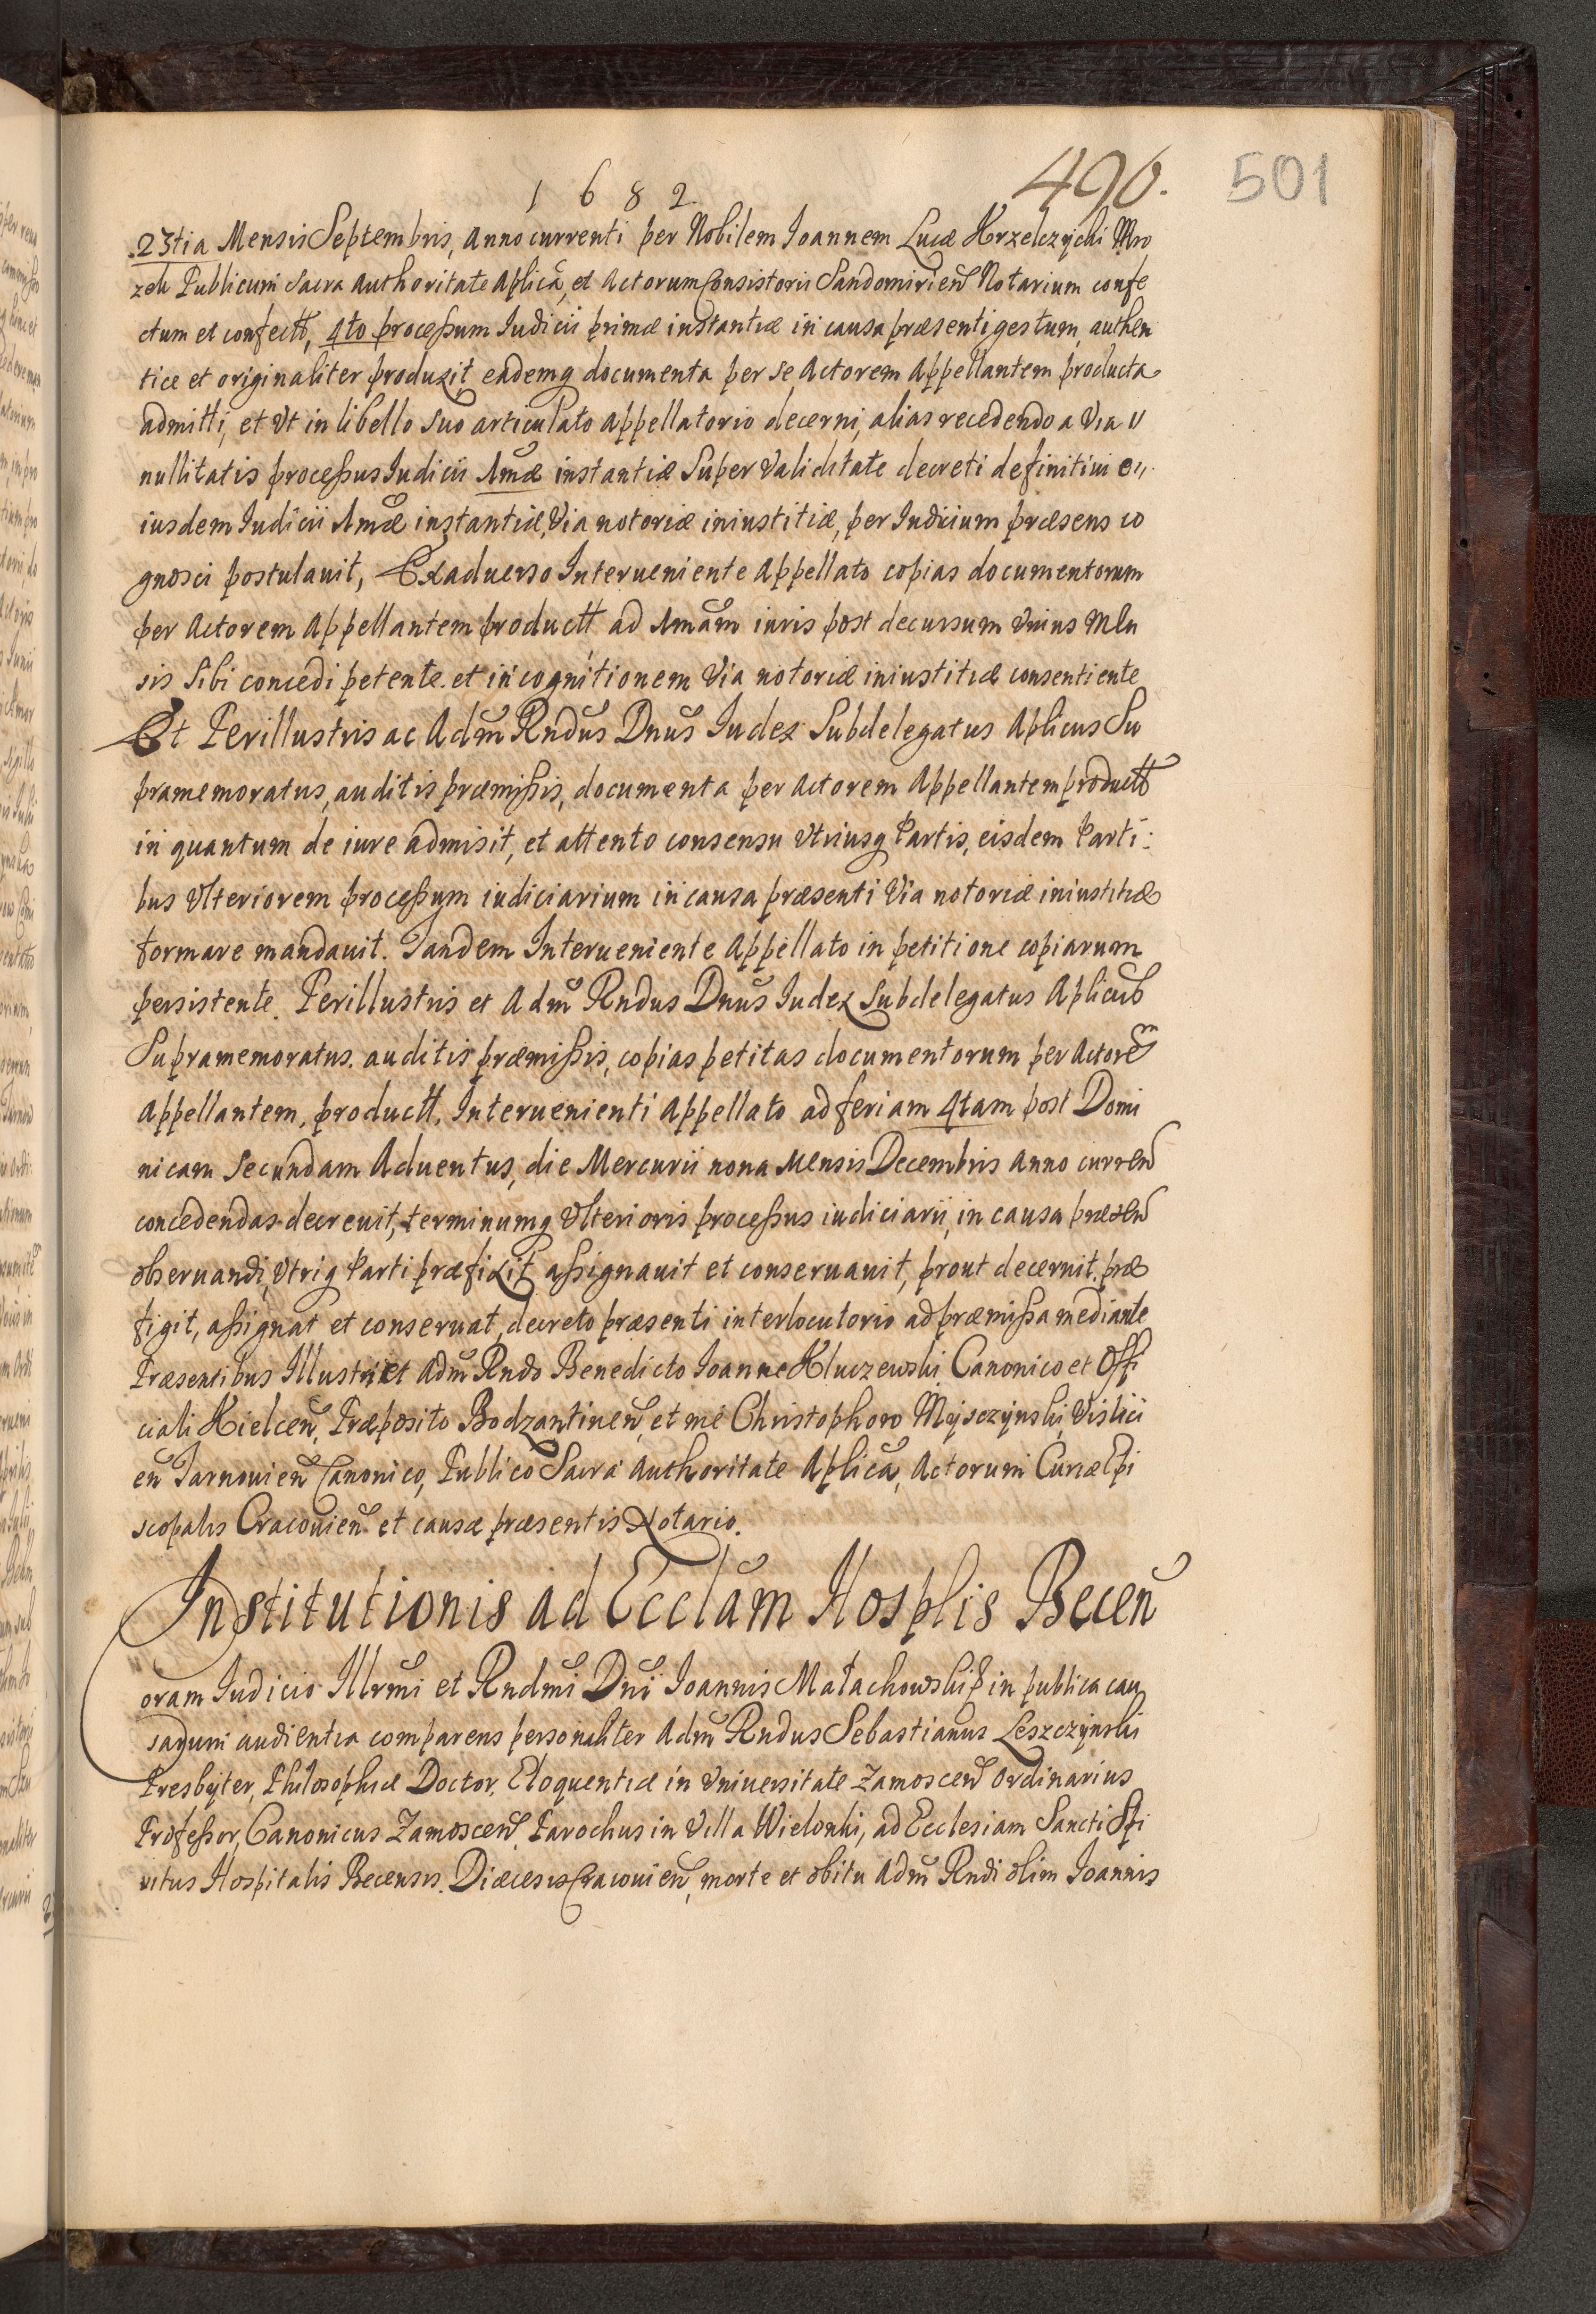 1682.
496.
501
23tia Mensis Septembris, Anno currenti per Nobilem Ioannem Lucæ Krzelczycki Mro
zek Publicum Sacra Authoritate Aplicã, et Actorum Consistorii Sandomirieñ Notarium confe
ctum et confectt, 4to processum Iudicii primæ instantiæ in causa præsenti gestum, authen
tice et originaliter produxit, eademq documenta per se Actorem Appellantem producta
admitti, et Vt in libello suo articulato appellatorio decerni, alias recedendo a Via
nullitatis processus Iudicii 1mæ instantiæ Super Validitate decreti definitiui e,,
iusdem Iudicii 1mæ instantiæ, Via notoriæ iniustitiæ, per Iudicium præsens co
gnosci postulauit, Ex aduerso Interueniente Appellato copias documentorum
per Actorem Appellantem productt ad 1mam iuris post decursum Vnius Men
sis Sibi concedi petente. et in cognitionem Via notoriæ iniustitiæ consentiente
Et Perillustris ac Adm̃ Rndus Dnus Iudex Subdelegatus Aplicus Su
pramemoratus, auditis præmissis, documenta per Actorem Appellantem productt
in quantum de iure admisit, et attento consensu Vtriusq Partis, eisdem Parti:
bus Vlteriorem processum iudiciarium in causa præsenti Via notoriæ iniustitiæ
formare mandauit. Tandem Interueniente Appellato in petitione copiarum
persistente. Perillustris et Adm̃ Rndus Dnus Iudex Subdelegatus Aplicus
Supramemoratus. auditis præmissis, copias petitas documentorum per Actorem
Appellantem, productt, Interuenienti Appellato ad feriam 4tam post Domi
nicam Secundam Aduentus, die Mercurii nona Mensis Decembris Anno curreñ
concedendas decreuit, terminumq Vlterioris processus iudiciarii, in causa præseñ
obseruandi, Vtriq Parti præfixit assignauit et conseruauit, prout decernit. præ
figit, assignat et conseruat, decreto præsenti interlocutorio ad præmissa mediante
Præsentibus Illustri et Adm̃ Rndo Benedicto Ioanne Kluczewski Canonico et Offi
ciali Kielceñ, Præposito Bodzantineñ, et me Christophoro Mysczynski, Vislici
eñ Tarnouieñ Canonico, Publico Sacra Authoritate Aplicã, Actorum Curiæ Epi
scopalis Cracouieñ et causæ præsentis Notario.
Institutionis ad Ecclãm Hosplis Beceñ
Coram Iudicio Illrmi et Rndmi Dni Ioannis Małachowski E in publica cau
sarum audientia comparens personaliter Adm̃ Rndus Sebastianus Leszczynski
Presbyter, Philosophiæ Doctor, Eloquentiæ in Vniuersitate Zamosceñ Ordinarius
Professor, Canonicus Zamosceñ, Parochus in Villa Wielonki, ad Ecclesiam Sancti Spi
ritus Hospitalis Becensis. Diæcesis Cracouieñ, morte et obitu Adm̃ Rndi olim Ioannis